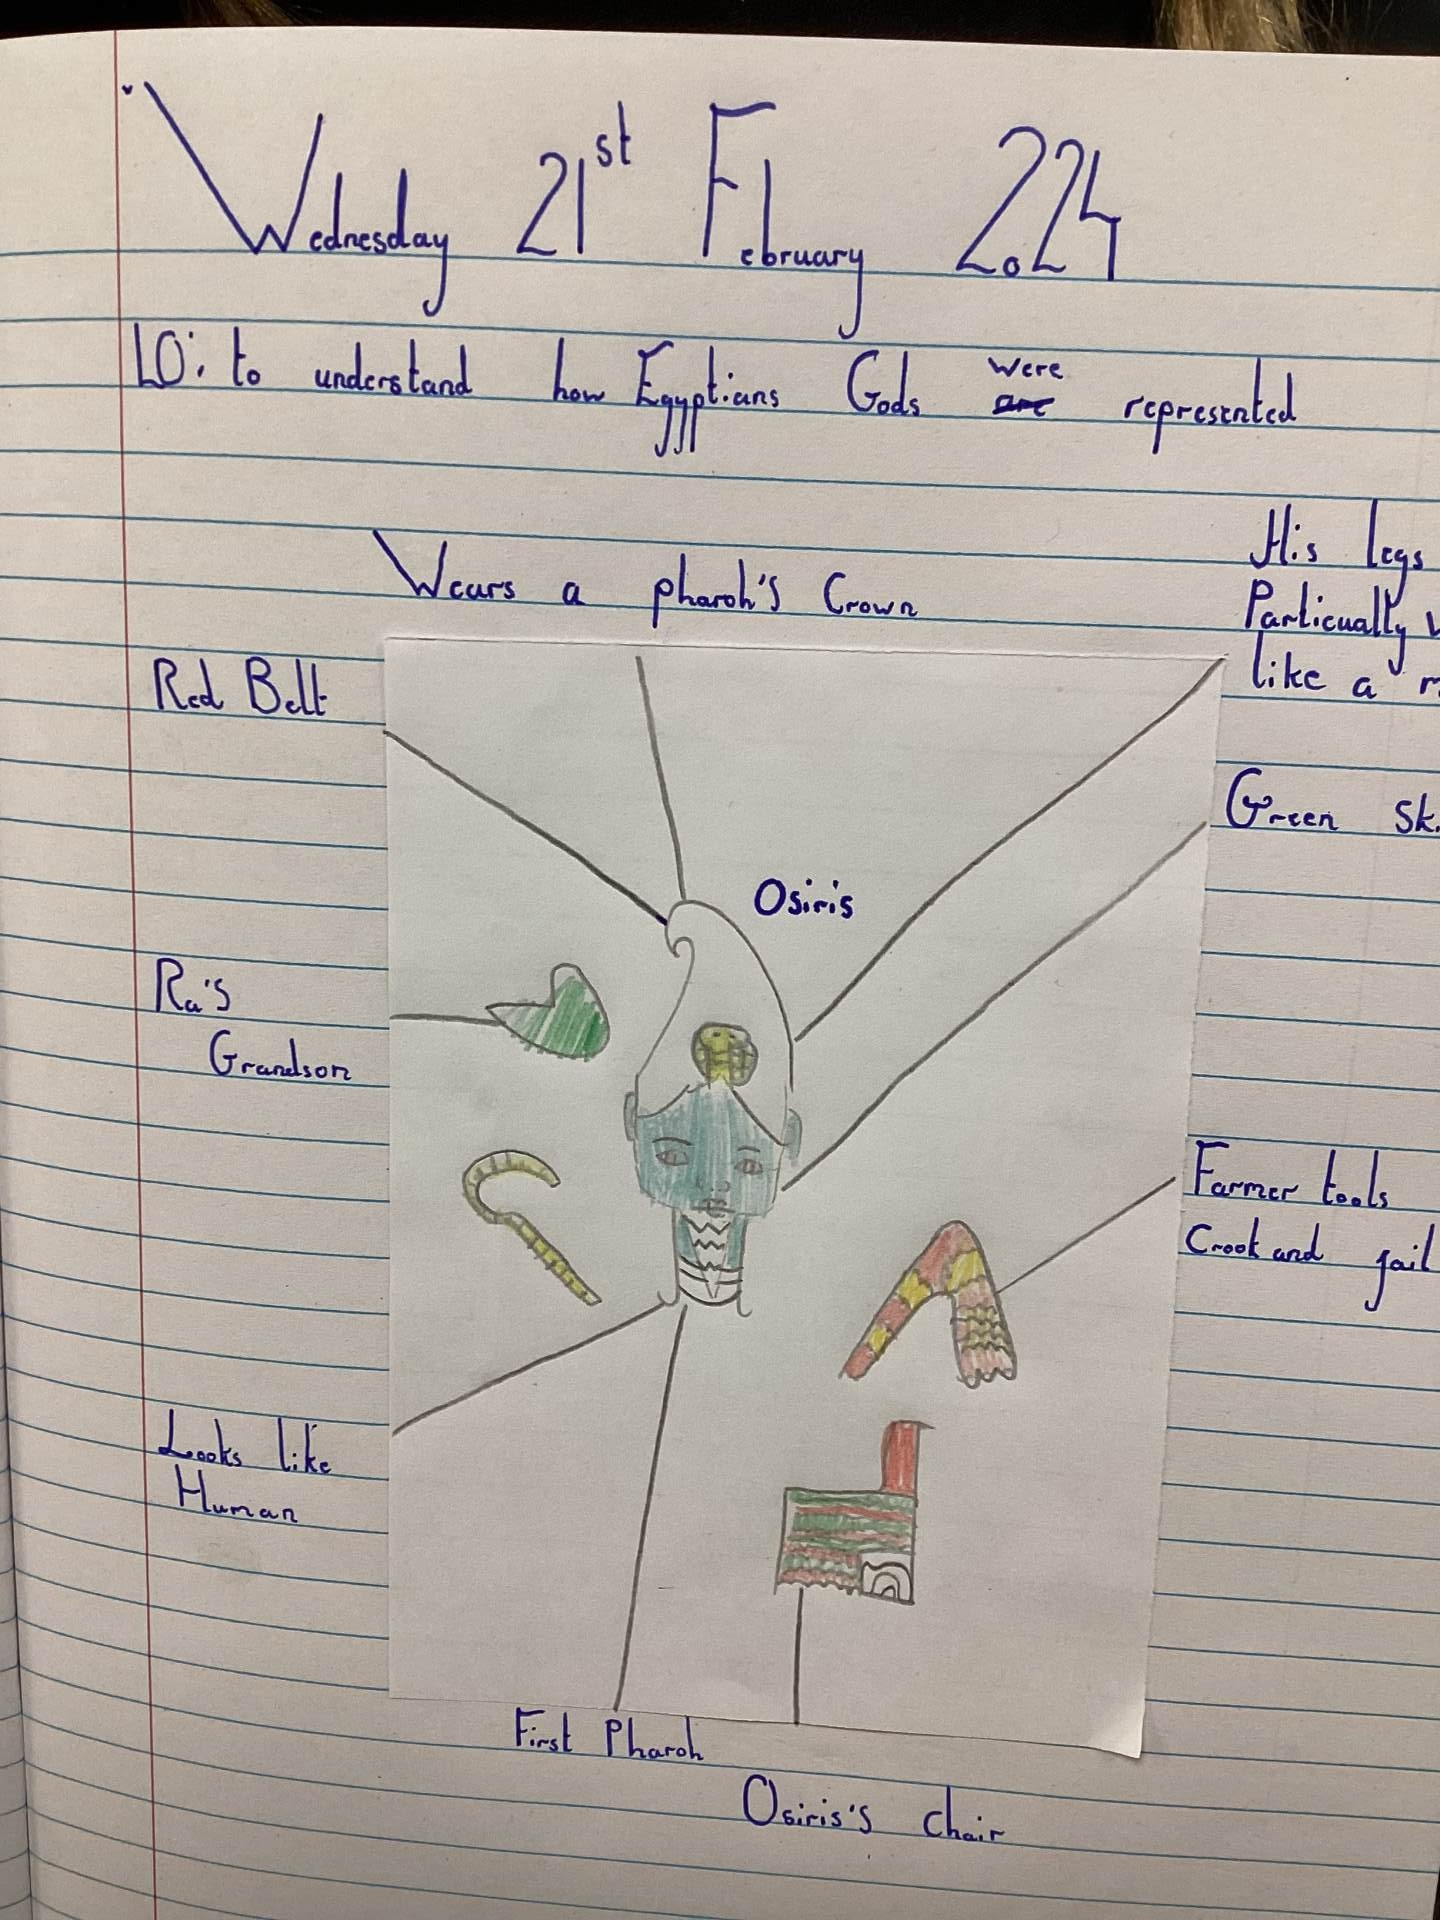 Wednesday 21st February 2024
LO: to understand how Egyptians Gods were are represented
Wears a pharoh's Crown
His legs
Particually
like a
Red Belt
Green
Osiris
Ra's
Grandson
Farmer tools
Crook and fail
Looks like
Human
First Pharoh
Osiris's chair